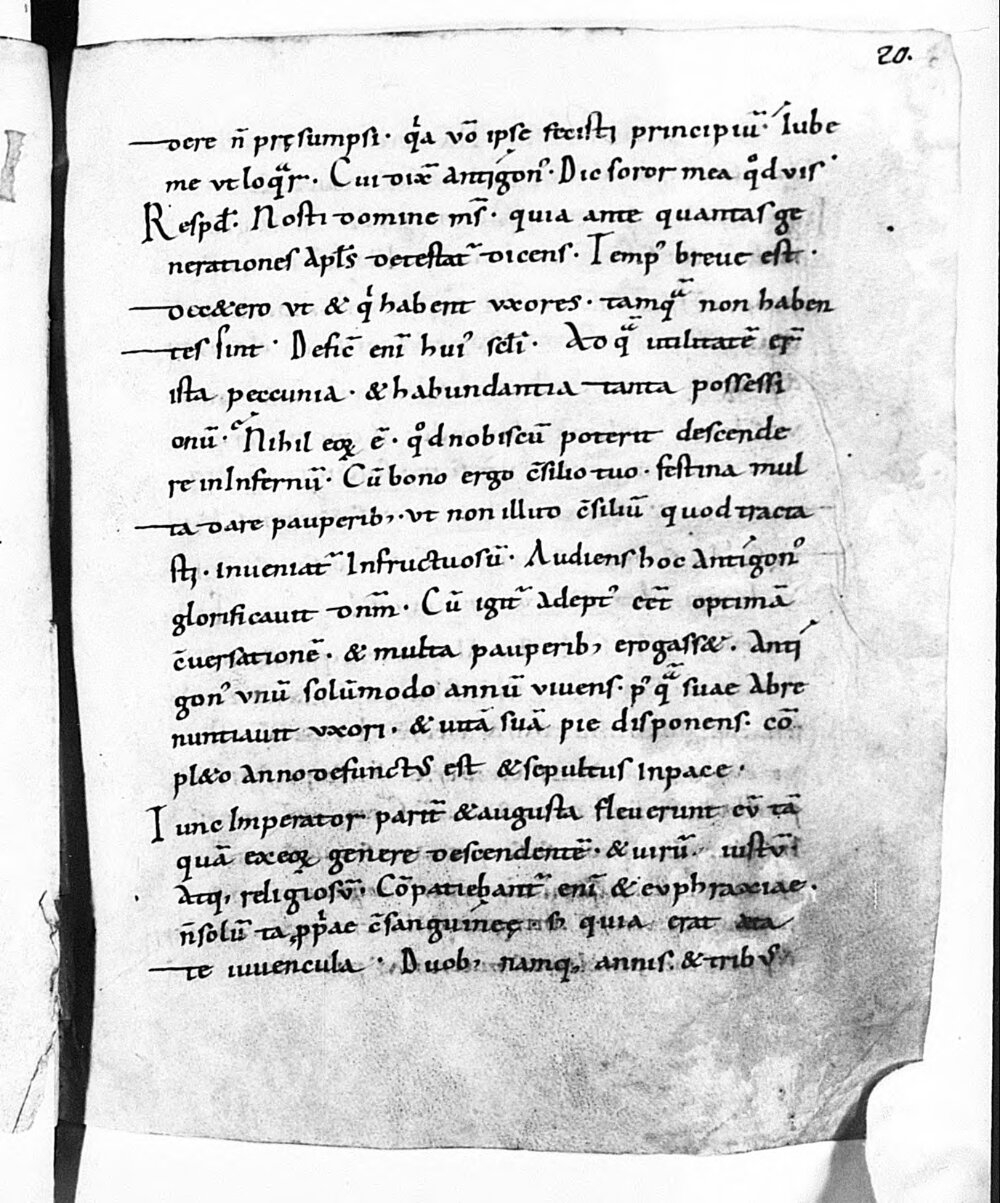 20.
dere n̄ pręsumpsi · qͥa vō ipse fecisti principiū · Iube
me vt loqͣr · Cui dix̄ antigonꝰ · Dic soror mea qͦd vis
Respd̄ · Nosti domine mı̄ · quia ante quantas ge
nerationes Apl̄s detestat᷑ dicens · Tempꝰ breue est ·
de cętero vt & qͥ habent vxores · tamqͣ non haben
tes sint · Deficē enı̄ huiꝰ scl̄i · Ad qͣ utilitatē er̄
ista peccunia · & habundantia tanta possessi
onū · Nihil eoꝝ ē · qͦd nobiscū poterit descende
re in Infernū · Cū bono ergo c̄silio tuo · festina mul
ta dare pauperib; · vt non illud c̄siliū quod tracta
sti · inueniat᷑ Infructuosū · Audiens hoc Antigonꝰ
glorificauit dnm̄ · Cū igit᷑ adeptꝰ eēt optimā
c̄uersationē · & multa pauperib; erogass& · Anti
gonꝰ vnū solūmodo annū viuens · pꝰ qͣ suae Abre
nuntiauit vxori · & uitā suā pie disponens · cō
pl&o Anno defunctus est & sepultus Inpace ·
Tunc Imperator parit᷑ & augusta fleuerunt eū tā
quā ex eoꝝ genere descendentē · & uirū iustū
Atq; religiosū · Cōpatiebant᷑ enı̄ & euphraxiae ·
n̄ solū ta ꝓpͥae c̄sanguineę · s; quia erat aeta
te iuuencula · Duob; namq; annis · & tribus